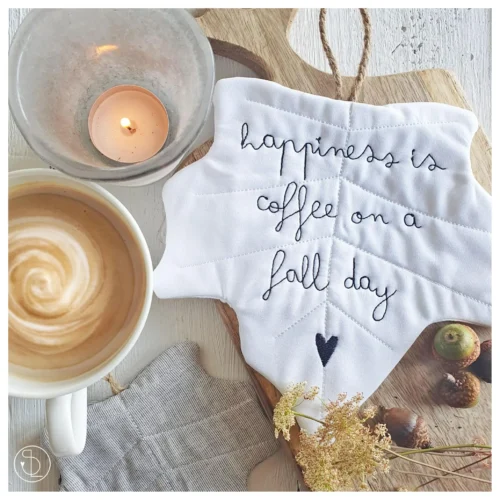 happiness is
coffee on a
fall day